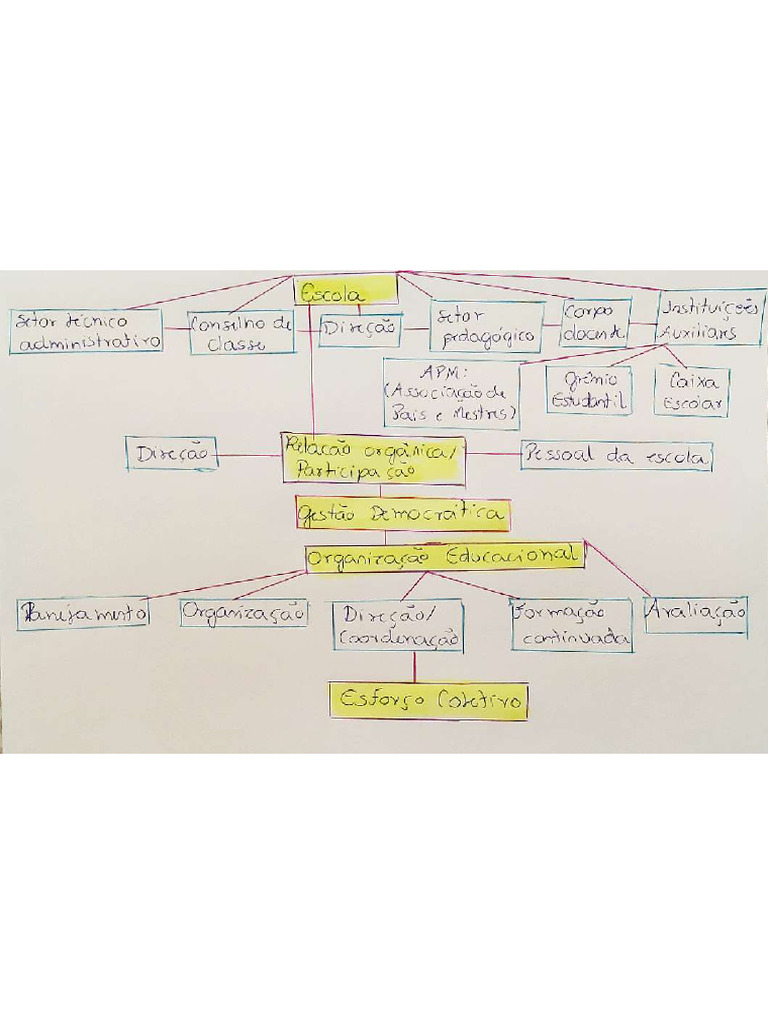 Escola
Setor técnico
administrativo
Conselho de
classe
Direção
Setor
pedagógico
Corpo
docente
Instituições
Auxiliares
APM:
(Associação de
Pais e Mestres)
Grêmio
Estudantil
Caixa
Escolar
Direção
Relação orgânica/
Participação
Pessoal da escola
Gestão Democrática
Organização Educacional
Planejamento
Organização
Direção/
Coordenação
Formação
continuada
Avaliação
Esforço Coletivo